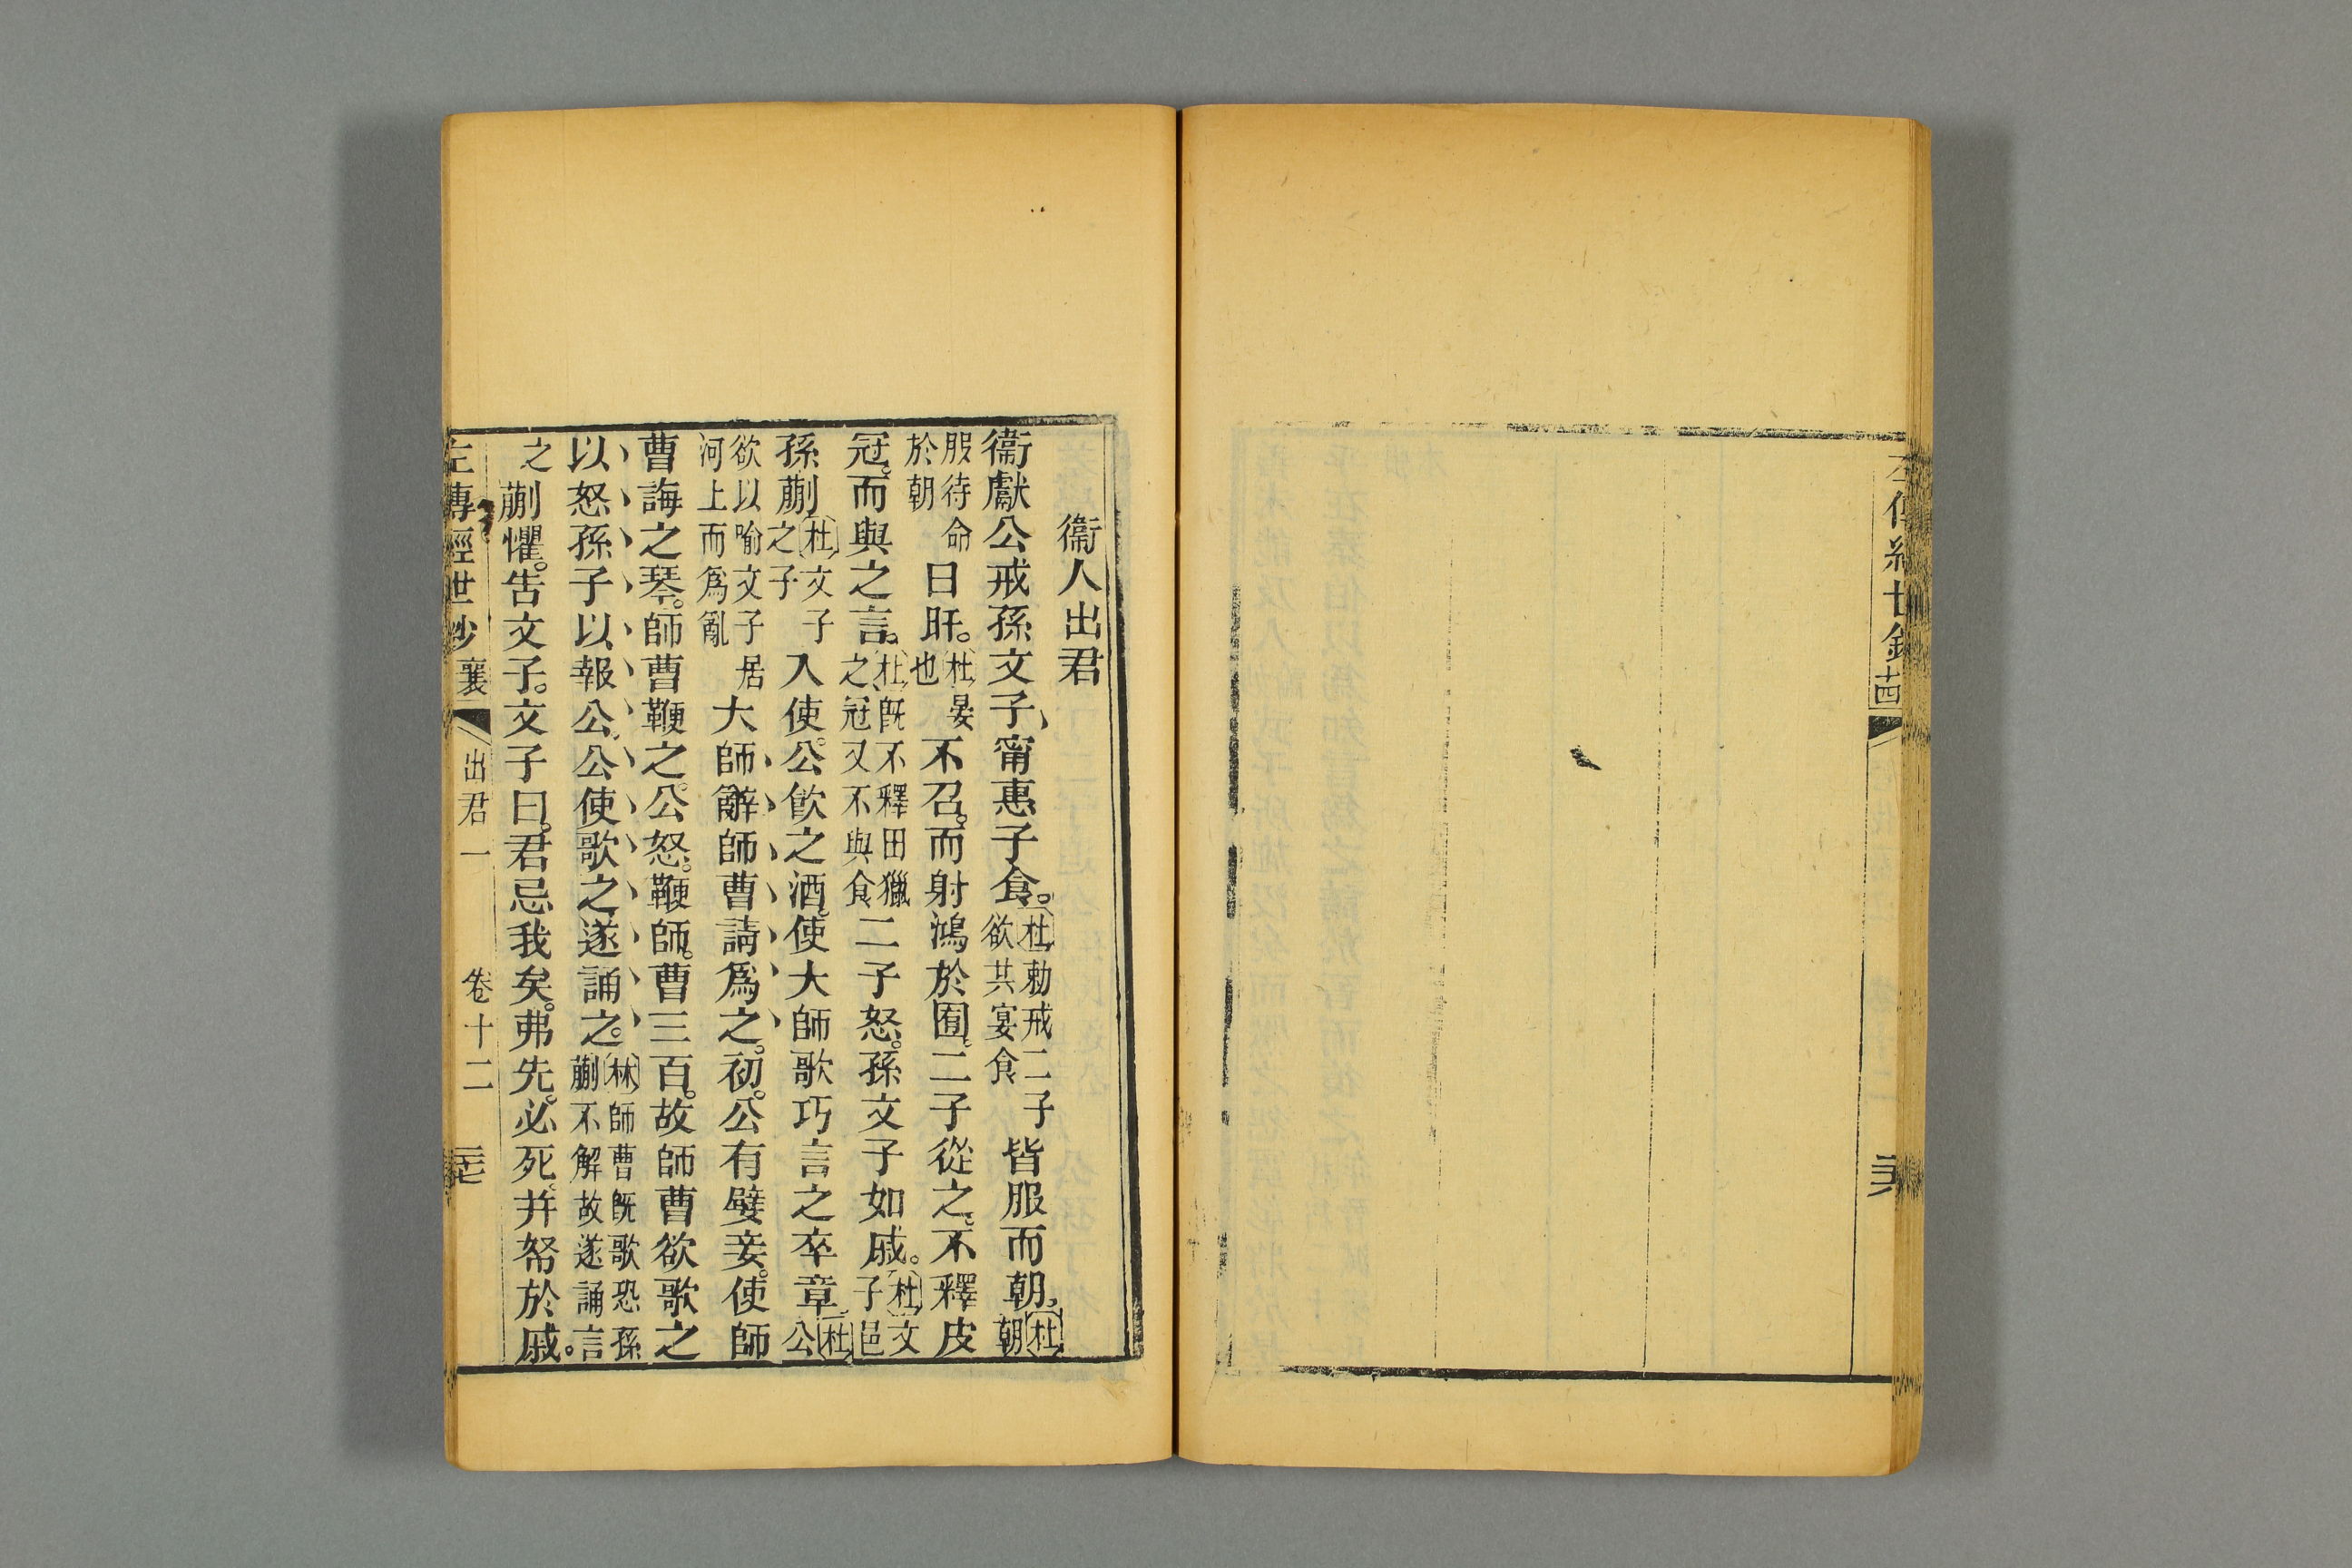 衞人出君
衞獻公戒孫文子甯惠子食。杜勅戒二子欲共宴食皆服而朝,杜朝
服待命於朝日旰。杜晏也不召。而射鴻於囿。二子從之。不釋皮
冠。而與之言。杜既不釋田獵之冠又不與食二子怒。孫文子如戚。杜文子邑
孫蒯杜文子之子入使。公飮之酒。使大師歌巧言之卒章。杜公
欲以喻文子居河上而爲亂大師辭師曹請爲之。初。公有嬖妾。使師
曹誨之琴。師曹鞭之。公怒。鞭師。曹三百。故師曹欲歌之
以怒孫子以報公。公使歌之遂誦之。林師曹既歌恐孫蒯不解故遂誦言
之蒯懼。告文子。文子曰。君忌我矣。弗先。必死。并帑於戚。
左傳經世鈔 襄 出君一 卷十二